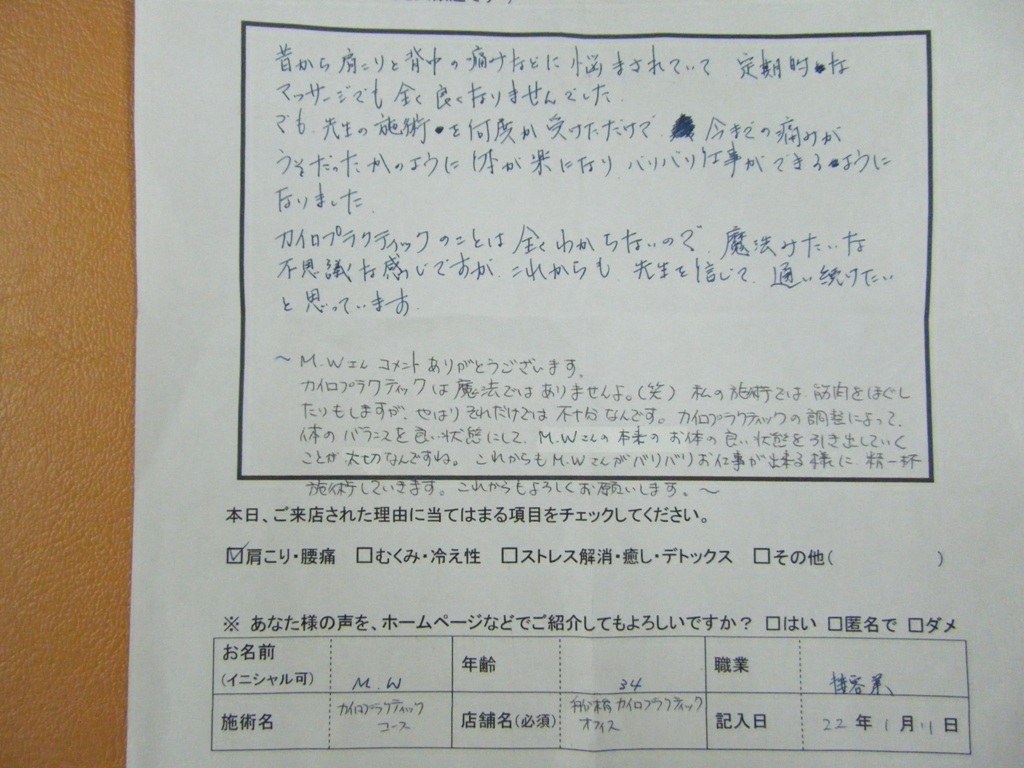 昔から肩こりと背中の痛みなどに悩まされていて 定期的な
マッサージでも全く良くなりませんでした.
でも、先生の施術を何度か受けただけで、今までの痛みが
うそだったかのように体が楽になりバリバリ仕事ができるように
なりました.
カイロプラクティックのことは全くわからないので、魔法みたいな
不思議な感じですが、これからも、先生を信じて、通い続けたい
と思っています.
～M.Wさん コメントありがとうございます。
カイロプラクティックは魔法ではありませんよ。(笑) 私の施術では、筋肉をほぐし
たりもしますが、やはりそれだけでは不十分なんです。カイロプラクティックの調整によって、
体のバランスを良い状態にして、M.Wさんの本来のお体の良い状態を引き出していく
ことが大切なんですね。これからもM.Wさんがバリバリお仕事が出来る様に、精一杯
施術していきます。これからもよろしくお願いします。～
本日、ご来店された理由に当てはまる項目をチェックしてください。
☑肩こり・腰痛 □むくみ・冷え性 □ストレス解消・癒し・デトックス □その他( )
※ あなた様の声を、ホームページなどでご紹介してもよろしいですか? □はい □匿名で □ダメ
お名前 (イニシャル可) M.W 年齢 34 職業 接客業
施術名 カイロプラクティック コース 店舗名(必須) カイロプラクティック オフィス 記入日 22年1月11日